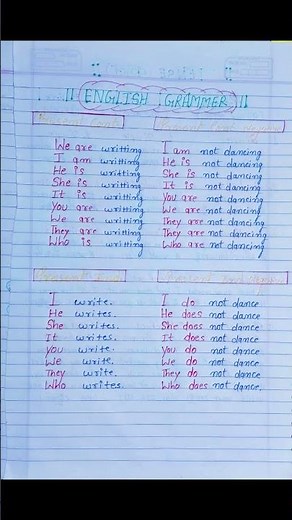 ENGLISH GRAMMER
We are writting
I am writting
He is writting
She is writting
It is writting
You are writting
We are writting
They are writting
Who is writting
I am not dancing
He is not dancing
She is not dancing
It is not dancing
You are not dancing
We are not dancing
They are not dancing
They are not dancing
Who are not dancing
I write.
He writes.
She writes.
It writes.
You write.
We write.
They write.
Who writes.
I do not dance
He does not dance
She does not dance
It does not dance
You do not dance
We do not dance
They do not dance
Who does not dance